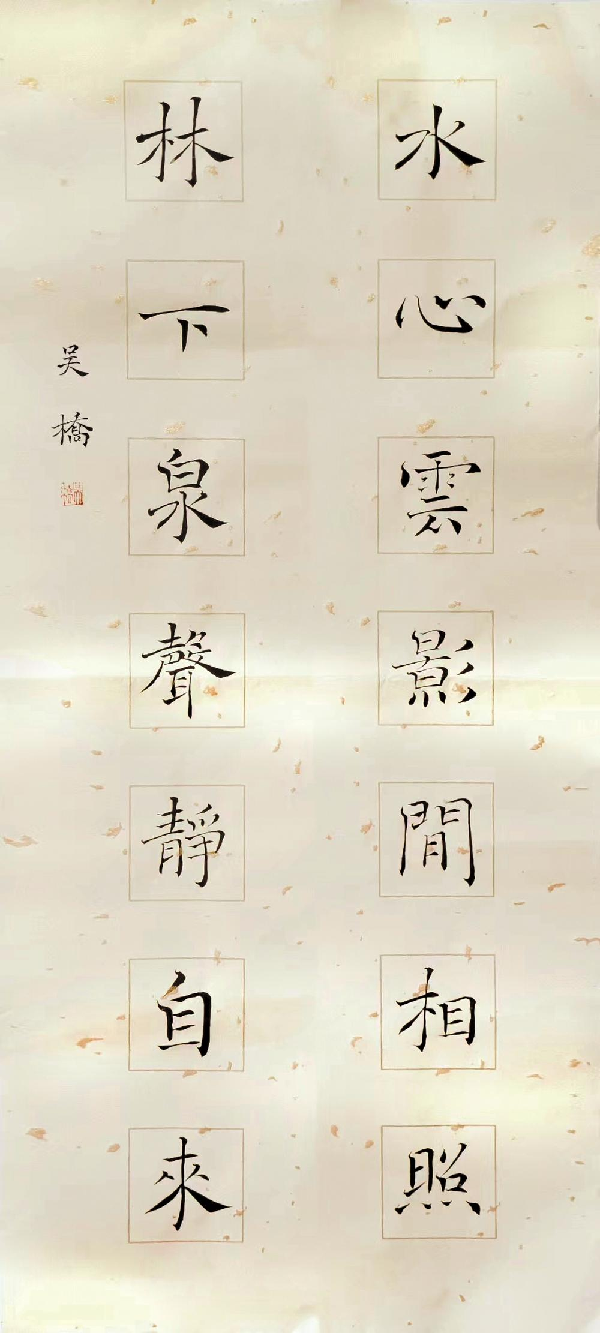 水心雲影間相照
林下泉聲靜自來
吴橋